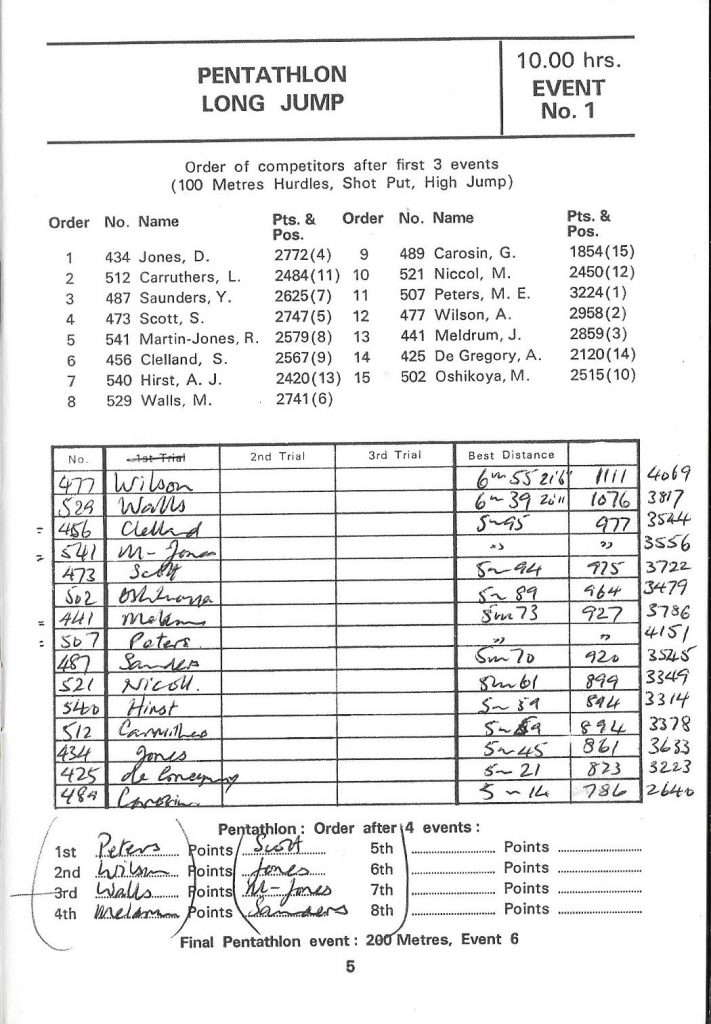 PENTATHLON
LONG JUMP
10.00 hrs.
EVENT
No. 1
Order of competitors after first 3 events
(100 Metres Hurdles, Shot Put, High Jump)
Order No. Name Pts. & Pos. Order No. Name Pts. & Pos.
1 434 Jones, D. 2772(4) 9 489 Carosin, G. 1854(15)
2 512 Carruthers, L. 2484(11) 10 521 Niccol, M. 2450(12)
3 487 Saunders, Y. 2625(7) 11 507 Peters, M. E. 3224(1)
4 473 Scott, S. 2747(5) 12 477 Wilson, A. 2958(2)
5 541 Martin-Jones, R. 2579(8) 13 441 Meldrum, J. 2859(3)
6 456 Clelland, S. 2567(9) 14 425 De Gregory, A. 2120(14)
7 540 Hirst, A. J. 2420(13) 15 502 Oshikoya, M. 2515(10)
8 529 Walls, M. 2741(6)
No. 1st Trial 2nd Trial 3rd Trial Best Distance
477 Wilson 6m 55 21'6" 1111 4069
529 Walls 6m 39 20'11 1076 3817
= 456 Clelland 5m 95 977 3544
= 541 M-Jones " " 3556
473 Scott 5m 94 975 3722
502 Oshikoya 5m 89 964 3479
= 441 Meldrum 5m 73 927 3786
= 507 Peters " " 4151
487 Sanders 5m 70 920 3545
521 Nicoll. 5m 61 899 3349
540 Hirst 5m 59 894 3314
512 Carruthers 5m 59 894 3378
434 Jones 5m 45 861 3633
425 de 5m 21 823 3223
489 Carosin 5m 14 786 2640
Pentathlon : Order after 4 events :
1st Peters Points Scott 5th Points
2nd Wilson Points Jones 6th Points
3rd Walls Points M-Jones 7th Points
4th Meldrum Points Sanders 8th Points
Final Pentathlon event : 200 Metres, Event 6
5